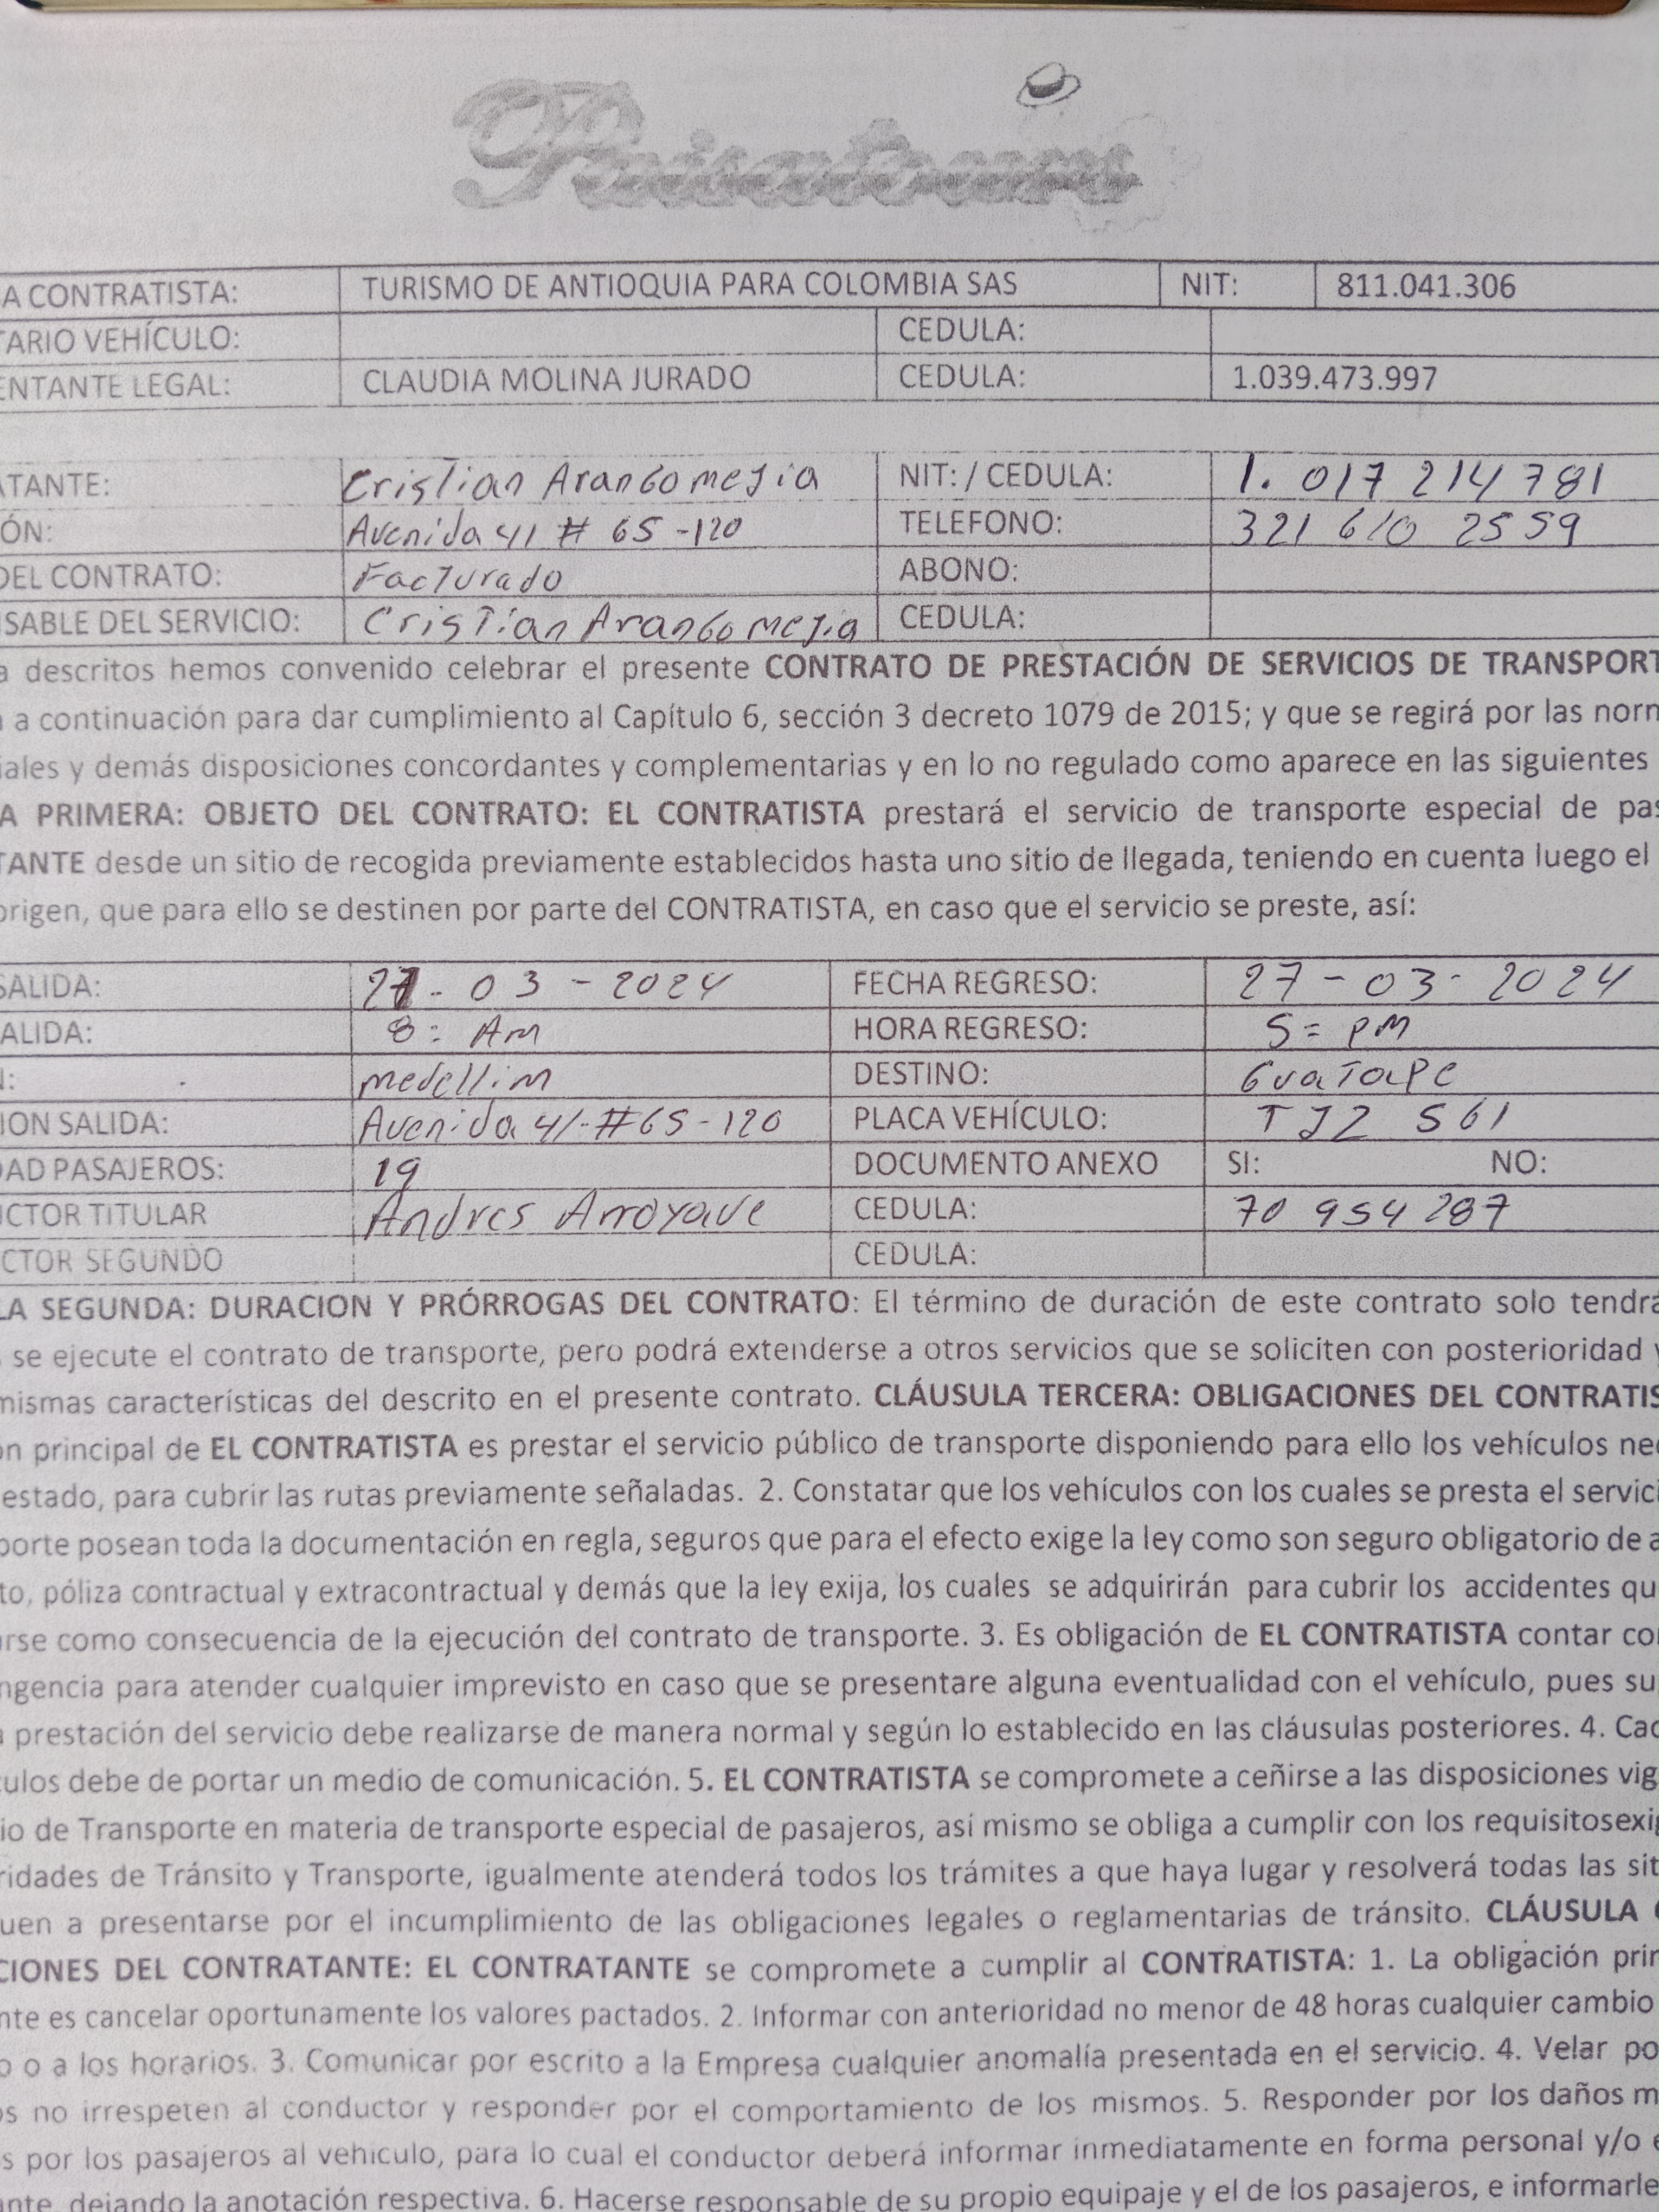 Paisatours
A CONTRATISTA: TURISMO DE ANTIOQUIA PARA COLOMBIA SAS NIT: 811.041.306
TARIO VEHÍCULO: CEDULA:
ENTANTE LEGAL: CLAUDIA MOLINA JURADO CEDULA: 1.039.473.997
TANTE: Cristian Arango mejia NIT: / CEDULA: 1. 017 214 781
ÓN: Avenida 41 # 65 -120 TELEFONO: 321 610 2559
DEL CONTRATO: Facturado ABONO:
SABLE DEL SERVICIO: Cristian Arango mejia CEDULA:
a descritos hemos convenido celebrar el presente CONTRATO DE PRESTACIÓN DE SERVICIOS DE TRANSPORT
a continuación para dar cumplimiento al Capítulo 6, sección 3 decreto 1079 de 2015; y que se regirá por las norm
iales y demás disposiciones concordantes y complementarias y en lo no regulado como aparece en las siguientes
A PRIMERA: OBJETO DEL CONTRATO: EL CONTRATISTA prestará el servicio de transporte especial de pas
TANTE desde un sitio de recogida previamente establecidos hasta uno sitio de llegada, teniendo en cuenta luego el
origen, que para ello se destinen por parte del CONTRATISTA, en caso que el servicio se preste, así:
SALIDA: 27 - 03 - 2024 FECHA REGRESO: 27 - 03 - 2024
ALIDA: 8: Am HORA REGRESO: 5= PM
N: medellim DESTINO: Guatape
ION SALIDA: Avenida 41-#65-120 PLACA VEHÍCULO: TJZ 561
DAD PASAJEROS: 19 DOCUMENTO ANEXO SI: NO:
UCTOR TITULAR Andres Arroyave CEDULA: 70 954 287
CTOR SEGUNDO CEDULA:
LA SEGUNDA: DURACION Y PRÓRROGAS DEL CONTRATO: El término de duración de este contrato solo tendrá
se ejecute el contrato de transporte, pero podrá extenderse a otros servicios que se soliciten con posterioridad y
mismas características del descrito en el presente contrato. CLÁUSULA TERCERA: OBLIGACIONES DEL CONTRATIS
ón principal de EL CONTRATISTA es prestar el servicio público de transporte disponiendo para ello los vehículos nec
estado, para cubrir las rutas previamente señaladas. 2. Constatar que los vehículos con los cuales se presta el servici
porte posean toda la documentación en regla, seguros que para el efecto exige la ley como son seguro obligatorio de a
to, póliza contractual y extracontractual y demás que la ley exija, los cuales se adquirirán para cubrir los accidentes qu
arse como consecuencia de la ejecución del contrato de transporte. 3. Es obligación de EL CONTRATISTA contar con
ngencia para atender cualquier imprevisto en caso que se presentare alguna eventualidad con el vehículo, pues su
a prestación del servicio debe realizarse de manera normal y según lo establecido en las cláusulas posteriores. 4. Cad
culos debe de portar un medio de comunicación. 5. EL CONTRATISTA se compromete a ceñirse a las disposiciones vig
io de Transporte en materia de transporte especial de pasajeros, así mismo se obliga a cumplir con los requisitosexig
ridades de Tránsito y Transporte, igualmente atenderá todos los trámites a que haya lugar y resolverá todas las sit
uen a presentarse por el incumplimiento de las obligaciones legales o reglamentarias de tránsito. CLÁUSULA C
CIONES DEL CONTRATANTE: EL CONTRATANTE se compromete a cumplir al CONTRATISTA: 1. La obligación prin
nte es cancelar oportunamente los valores pactados. 2. Informar con anterioridad no menor de 48 horas cualquier cambio
o o a los horarios. 3. Comunicar por escrito a la Empresa cualquier anomalía presentada en el servicio. 4. Velar po
os no irrespeten al conductor y responder por el comportamiento de los mismos. 5. Responder por los daños m
s por los pasajeros al vehiculo, para lo cual el conductor deberá informar inmediatamente en forma personal y/o e
ante, dejando la anotación respectiva. 6. Hacerse responsable de su propio equipaje y el de los pasajeros, e informarle